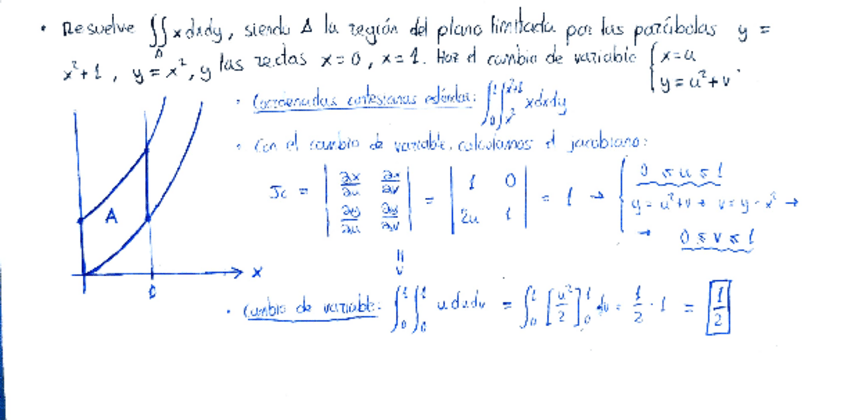 • Resuelve ∬_A x dxdy, siendo A la región del plano limitada por las parábolas y =
x²+1, y = x², y las rectas x=0, x=1. Haz el cambio de variable { x=u
y=u²+v.
• Coordenadas cartesianas estándar: ∫₀¹∫_{x²}^{x²+1} x dxdy
• Con el cambio de variable, calculamos el jacobiano:
Jc = | ∂x/∂u ∂x/∂v ; ∂y/∂u ∂y/∂v | = | 1 0 ; 2u 1 | = 1 → { 0 ≤ u ≤ 1
y = u²+v → v = y - x² →
→ 0 ≤ v ≤ 1
A
x
• Cambio de variable: ∫₀¹∫₀¹ u dudv = ∫₀¹ [u²/2]₀¹ dv = 1/2 · 1 = 1/2